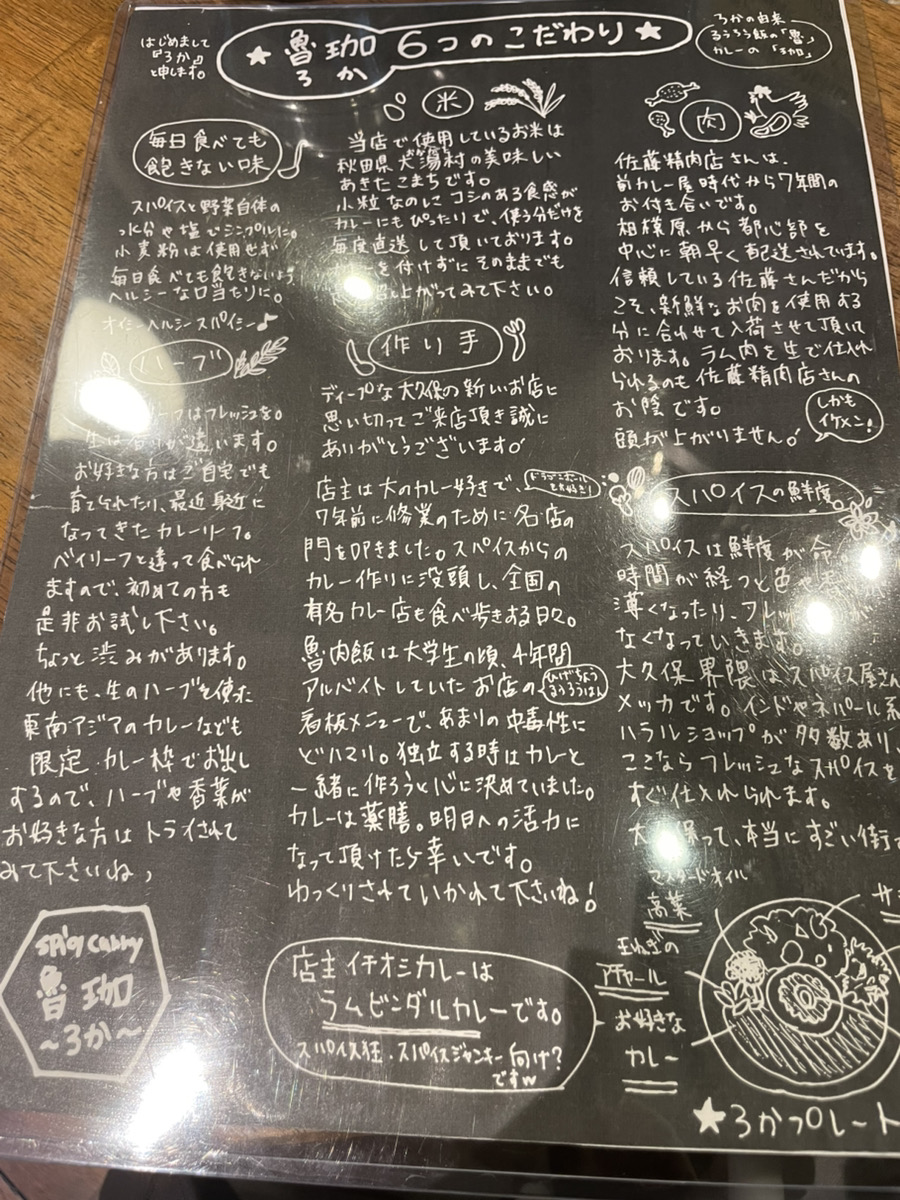 はじめまして
『ろか』
と申します。
★ 魯珈 6つのこだわり ★
ろか
ろかの由来
るうろう飯の「魯」
カレーの「珈」
毎日食べても
飽きない味
スパイスと野菜自体の
水分や塩でシンプルに。
小麦粉は使用せず
毎日食べても飽きないよう
ヘルシーな口当たりに。
オイシーヘルシースパイシー♪
ハーブ
リーフはフレッシュを。
生は香りが違います。
お好きな方はご自宅でも
育てられたり、最近身近に
なってきたカレーリーフ。
ベイリーフと違って食べられ
ますので、初めての方も
是非お試し下さい。
ちょっと渋みがあります。
他にも、生のハーブを使った
東南アジアのカレーなども
限定カレー枠でお出し
するので、ハーブや香菜が
お好きな方はトライされて
みて下さいね♪
SPicy CuRRy
魯珈
～ろか～
米
当店で使用しているお米は
秋田県大潟村の美味しい
あきたこまちです。
小粒なのにコシのある食感が
カレーにもぴったりで、使う分だけを
毎度直送して頂いております。
を付けずにそのままでも
召し上がってみて下さい。
作り手
ディープな大久保の新しいお店に
思い切ってご来店頂き誠に
ありがとうございます!
店主は大のカレー好きで、
ドラゴンボール
も大好き!
7年前に修業のために名店の
門を叩きました。スパイスからの
カレー作りに没頭し、全国の
有名カレー店も食べ歩きする日々。
魯肉飯は大学生の頃、4年間
アルバイトしていたお店の
ひげちょう
るうろうはん
看板メニューで、あまりの中毒性に
どハマリ。独立する時はカレーと
一緒に作ろうと心に決めていました。
カレーは薬膳。明日への活力に
なって頂けたら幸いです。
ゆっくりされていかれて下さいね!
店主イチオシカレーは
ラムビンダルカレーです。
スパイス狂・スパイスジャンキー向け?
ですw
肉
佐藤精肉店さんは、
前カレー屋時代から7年間の
お付き合いです。
相模原から都心部を
中心に朝早く配送されています。
信頼している佐藤さんだから
こそ、新鮮なお肉を使用する
分に合わせて入荷させて頂いて
おります。ラム肉を生で仕入れ
られるのも佐藤精肉店さんの
お陰です。
頭が上がりません!
しかも
イケメン!
スパイスの鮮度
スパイスは鮮度が命
時間が経つと色や
薄くなったり、フレッ
なくなっていきます。
大久保界隈はスパイス屋さん
メッカです。インドやネパール系
ハラルショップが多数あり、
ここならフレッシュなスパイスを
すぐ仕入れられます。
大久保って、本当にすごい街
マスタードオイル
高菜
玉ねぎの
アチャール
お好きな
カレー
★ろかプレート